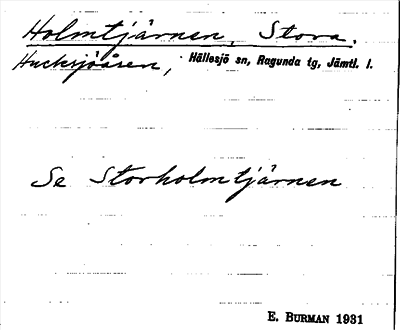 Holmtjärnen, Stora.
Hucksjöåsen, Hällesjö sn, Ragunda tg, Jämtl. l.
Se Storholmtjärnen
E. BURMAN 1931